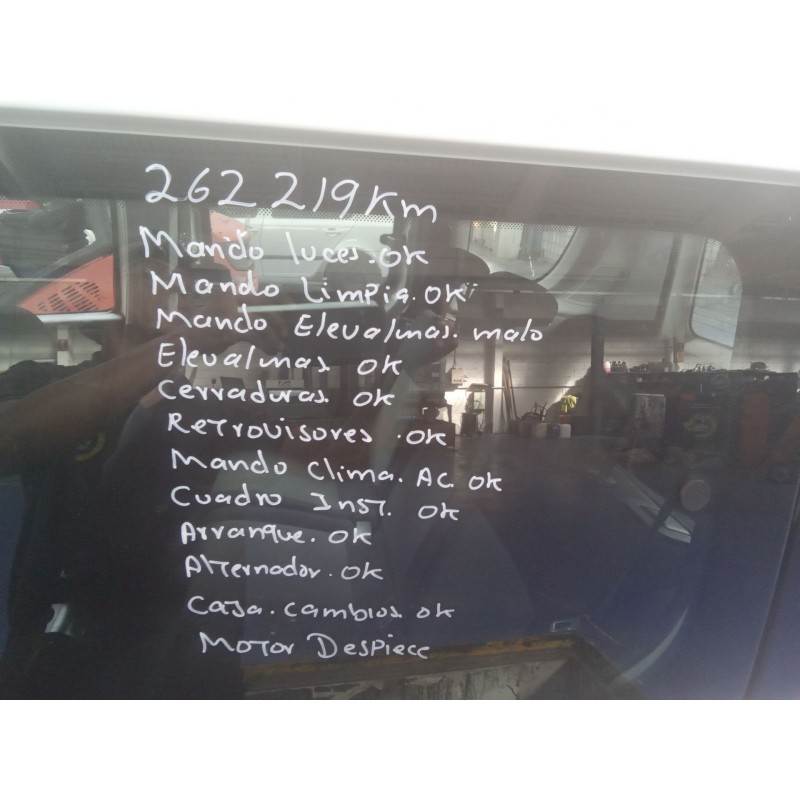 262 219 Km
Mando luces. OK
Mando Limpia. OK
Mando Elevalunas. malo
Elevalunas OK
Cerraduras OK
Retrovisores. OK
Mando Clima. AC OK
Cuadro Inst. OK
Arranque. OK
Alternador. OK
Caja. cambios. OK
Motor Despiece